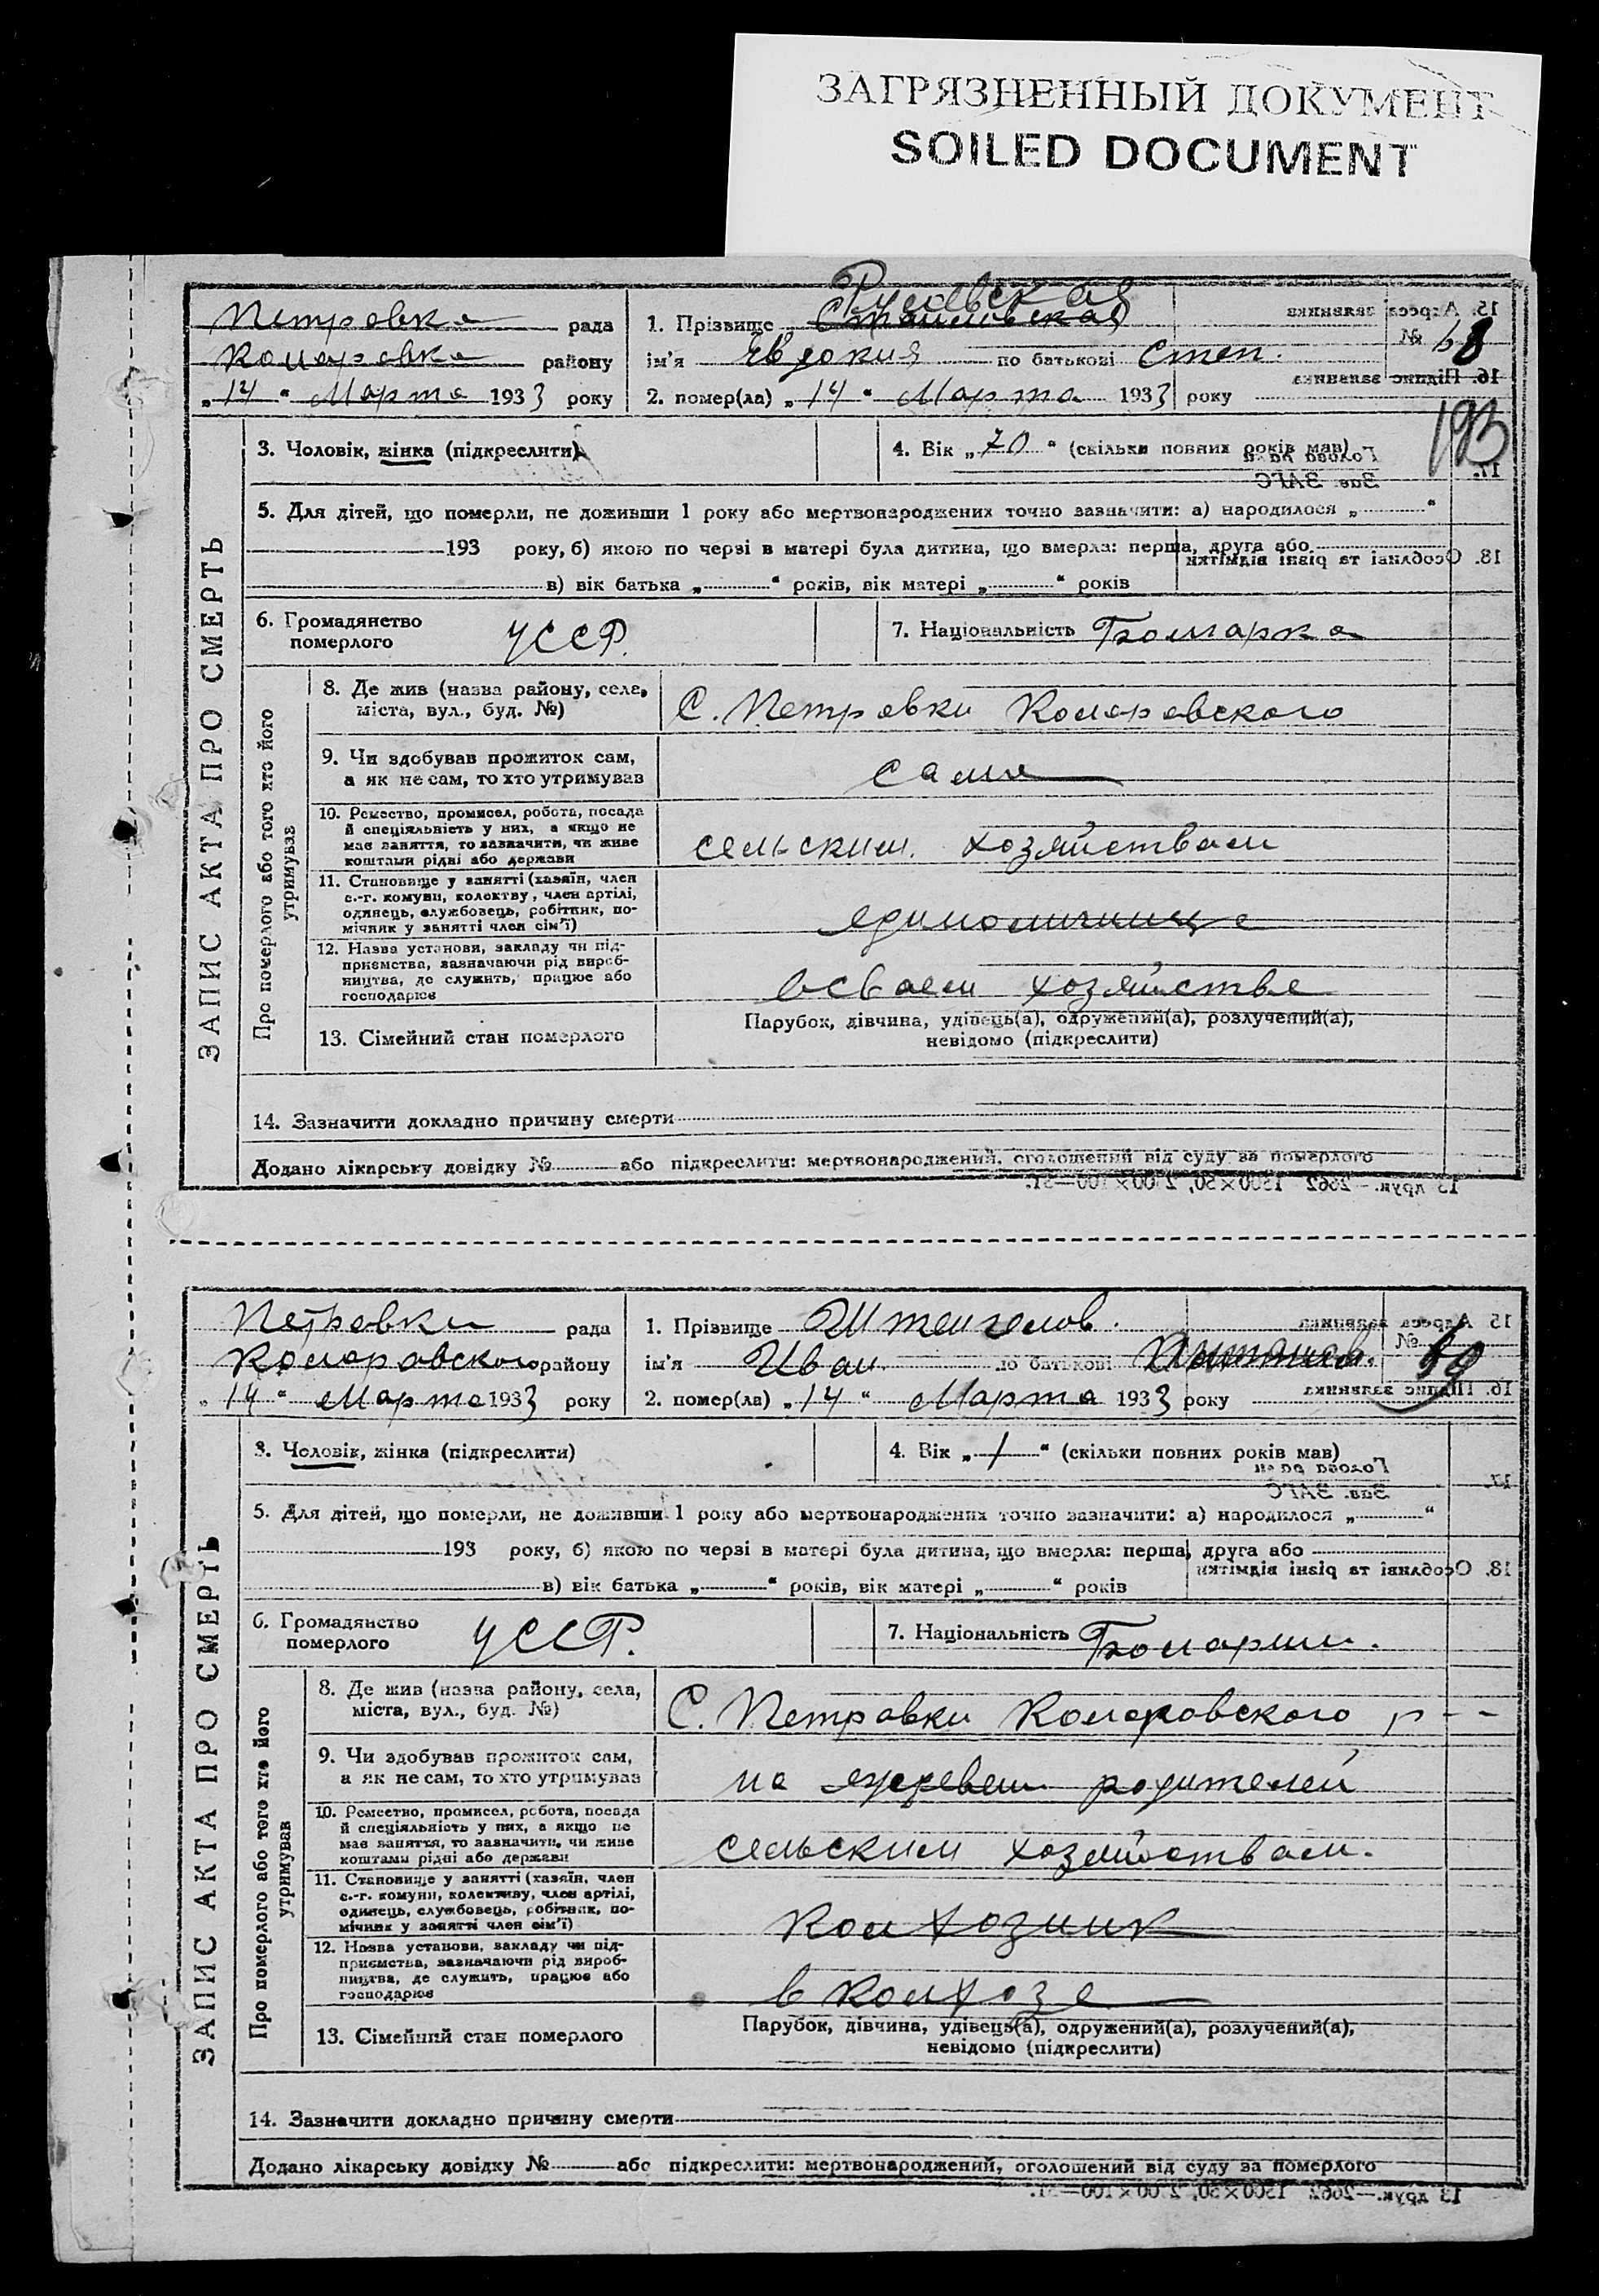 ЗАГРЯЗНЕННЫЙ ДОКУМЕНТ
SOILED DOCUMENT
Русевская
Петровка рада 1. Прізвище
№ 68
Комаровка району ім'я Явдокия по батькові Степ.
„14“ Марта 1933 року 2. помер(ла) „14“ Марта 1933 року
193
3. Чоловік, жінка (підкреслити) 4. Вік „70“ (скільки повних років мав)
5. Для дітей, що померли, не доживши 1 року або мертвонароджених точно зазначити: а) народилося „ “
193 року, б) якою по черзі в матері була дитина, що вмерла: перша, друга або
в) вік батька „ “ років, вік матері „ “ років
6. Громадянство померлого УССР. 7. Національність Болгарка
ЗАПИС АКТА ПРО СМЕРТЬ
Про померлого або того хто його утримував
8. Де жив (назва району, села, міста, вул., буд. №) С. Петровки Комаровского
9. Чи здобував прожиток сам, а як не сам, то хто утримував сама
10. Ремество, промисел, робота, посада й спеціяльність у них, а якщо не має заняття, то зазначити, чи живе коштами рідні або держави сельским хозяйством
11. Становище у занятті (хазяїн, член с.-г. комуни, колективу, член артілі, одинець, службовець, робітник, помічник у занятті член сім'ї) єдиноличница
12. Назва установи, закладу чи підприємства, зазначаючи рід виробництва, де служить, працює або господарює всвоем хозяйстве
13. Сімейний стан померлого Парубок, дівчина, удівець(а), одружений(а), розлучений(а), невідомо (підкреслити)
14. Зазначити докладно причину смерти
Додано лікарську довідку № або підкреслити: мертвонароджений, оголошений від суду за померлого
Петровки рада 1. Прізвище
№ 69
Комаровского району ім'я Иван по батькові
„14“ Марта 1933 року 2. помер(ла) „14“ Марта 1933 року
3. Чоловік, жінка (підкреслити) 4. Вік „1“ (скільки повних років мав)
5. Для дітей, що померли, не доживши 1 року або мертвонароджених точно зазначити: а) народилося „ “
193 року, б) якою по черзі в матері була дитина, що вмерла: перша, друга або
в) вік батька „ “ років, вік матері „ “ років
6. Громадянство померлого УССР. 7. Національність Болгарин.
ЗАПИС АКТА ПРО СМЕРТЬ
Про померлого або того хто його утримував
8. Де жив (назва району, села, міста, вул., буд. №) С. Петровки Комаровского р--
9. Чи здобував прожиток сам, а як не сам, то хто утримував на родителей
10. Ремество, промисел, робота, посада й спеціяльність у них, а якщо не має заняття, то зазначити, чи живе коштами рідні або держави сельским хозяйством.
11. Становище у занятті (хазяїн, член с.-г. комуни, колективу, член артілі, одинець, службовець, робітник, помічник у занятті член сім'ї) Колхозник
12. Назва установи, закладу чи підприємства, зазначаючи рід виробництва, де служить, працює або господарює в колхозе
13. Сімейний стан померлого Парубок, дівчина, удівець(а), одружений(а), розлучений(а), невідомо (підкреслити)
14. Зазначити докладно причину смерти
Додано лікарську довідку № або підкреслити: мертвонароджений, оголошений від суду за померлого